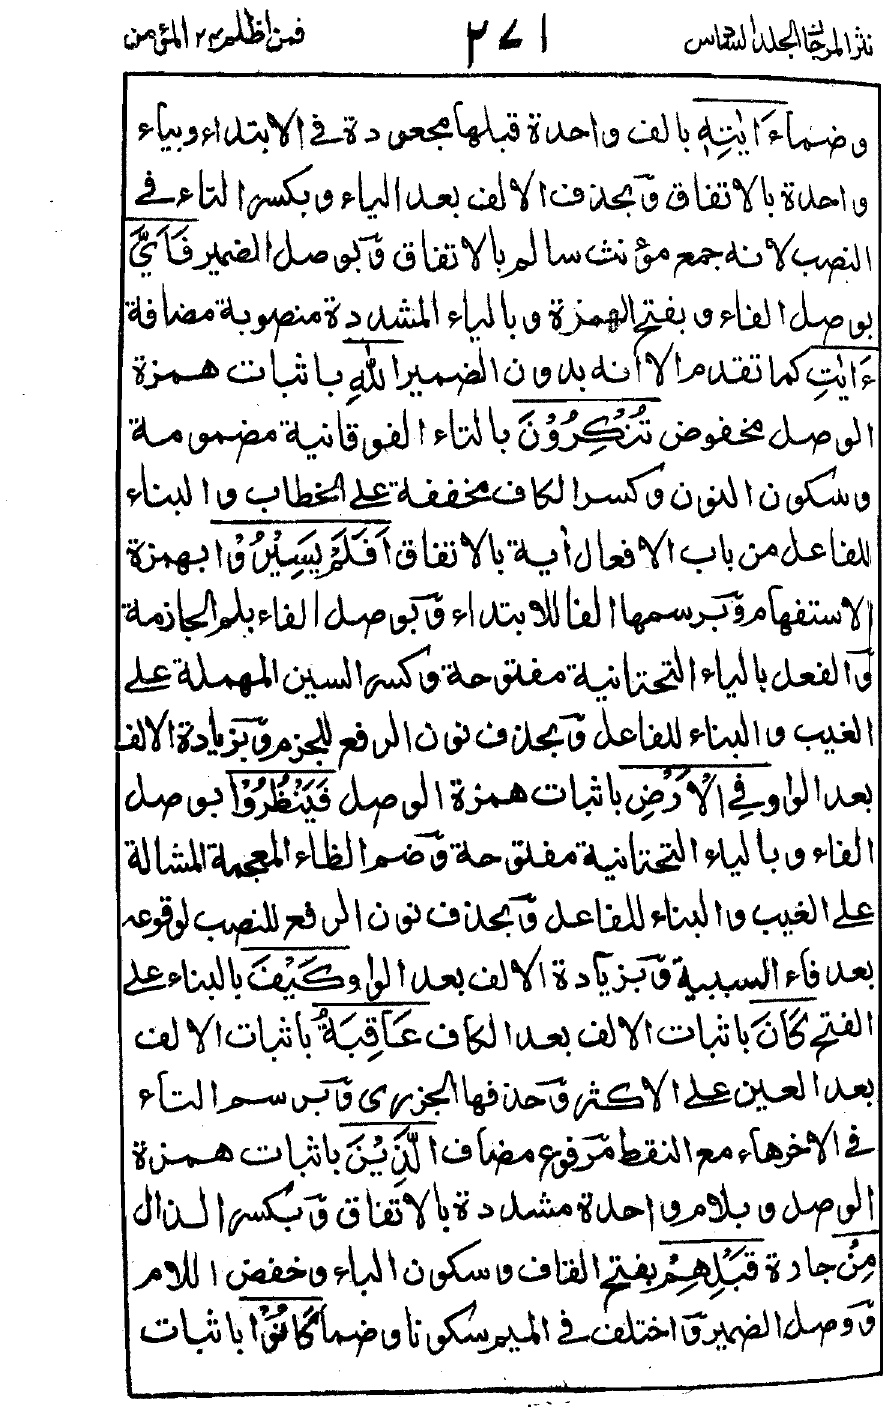 نثر المرجان الجلد السادس ٢٧١ فمن اظلم ٢٤ المؤمن
وضماءَايٰتِهٖ بالف واحدة قبلها مجعودة في الابتداء وبياء
واحدة بالاتفاق وٓبحذف الالف بعد الياء وبكسر التاء في
النصب لانه جمع مؤنث سالم بالاتفاق وٓبوصل الضمير فَاَيَّ
بوصل الفاء وبفتح الهمزة وبالياء المشددة منصوبة مضافة
ءَايٰتِ كما تقدم الا انه بدون الضمير اللّٰهِ باثبات همزة
الوصل مخفوض تُنْكِرُوْنَ بالتاء الفوقانية مضمومة
وسكون النون وكسر الكاف مخففة على الخطاب والبناء
للفاعل من باب الافعال أية بالاتفاق اَفَلَمْ يَسِيْرُوْا بهمزة
الاستفهام وٓبرسمها الفا للابتداء وٓبوصل الفاء بلم الجازمة
وٓالفعل بالياء التحتانية مفتوحة وكسر السين المهملة على
الغيب والبناء للفاعل وٓبحذف نون الرفع للجزم وٓبزيادة الالف
بعد الواو فِي الْاَرْضِ باثبات همزة الوصل فَيَنْظُرُوْا بوصل
الفاء وبالياء التحتانية مفتوحة وٓضم الظاء المعجمة المشالة
على الغيب والبناء للفاعل وٓبحذف نون الرفع للنصب لوقوعه
بعد فاء السببية وٓبزيادة الالف بعد الواو كَيْفَ بالبناء على
الفتح كَانَ باثبات الالف بعد الكاف عَاقِبَةُ باثبات الالف
بعد العين على الاكثر وٓحذفها الجزرى وٓبرسم التاء
في الاخر هاء مع النقط مرفوع مضاف الَّذِيْنَ باثبات همزة
الوصل وبلام واحدة مشددة بالاتفاق وٓبكسر الذال
مِنْ جادة قَبْلِهِمْ بفتح القاف وسكون الباء وخفض اللام
وٓوصل الضمير وٓاختلف في الميم سكونا وضما كَانُوْا باثبات